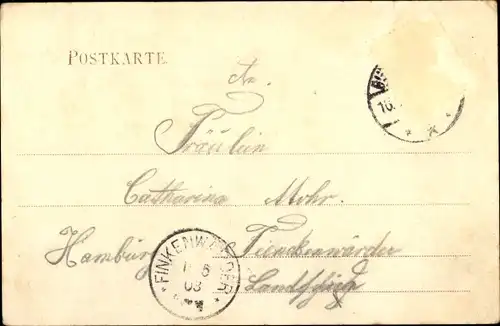 POSTKARTE.
An
Fräulein
Catharina Mohr.
Hamburg Finckenwärder
Landscheide
FINKENWÄRDER
03
10.